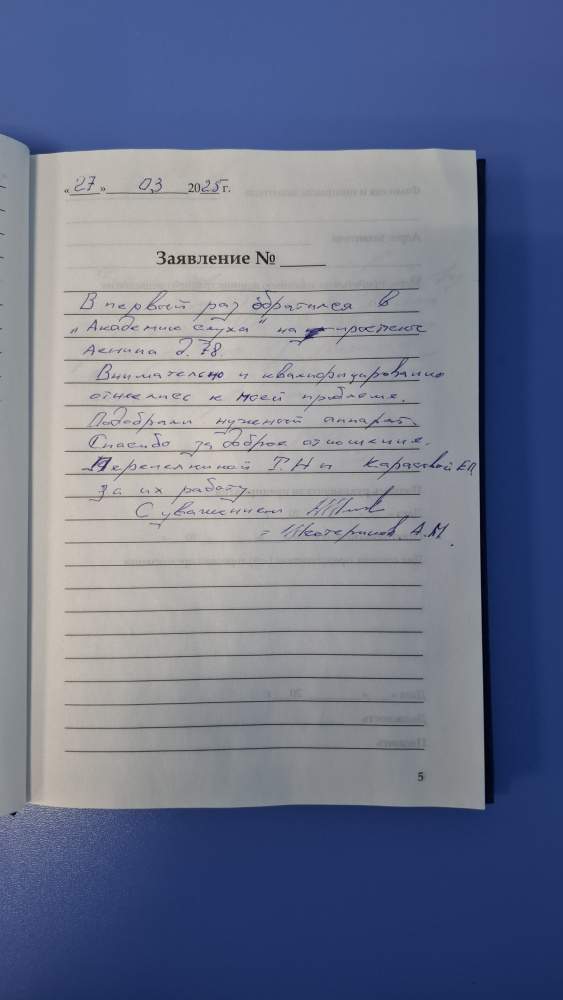 «27» 03 2025 г.
Заявление №
В первый раз обратился в
"Академию слуха" на проспекте
Ленина д. 78.
Внимательно и квалифицировано
отнеслись к моей проблеме.
Подобрали нужный аппарат.
Спасибо за доброе отношение.
Перепелкиной Т.Н и Карасевой Е.П
за их работу.
С уважением
= Шкатериков А.М.
5